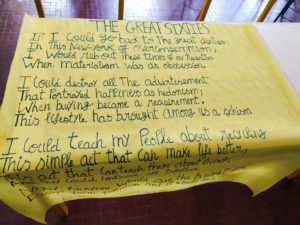 THE GREAT SIXTIES
If I could go back to the great sixties
In this New-York of overconsumption;
I would rub out these times of my twenties
When materialism was an obsession
I could destroy all the advertisement
That portrayed happiness as hedonism;
When buying became a requirement.
This lifestyle has brought among us a schism
I could teach my People about recycling
This simple act that can make life better,
This act that can teach them about
they could